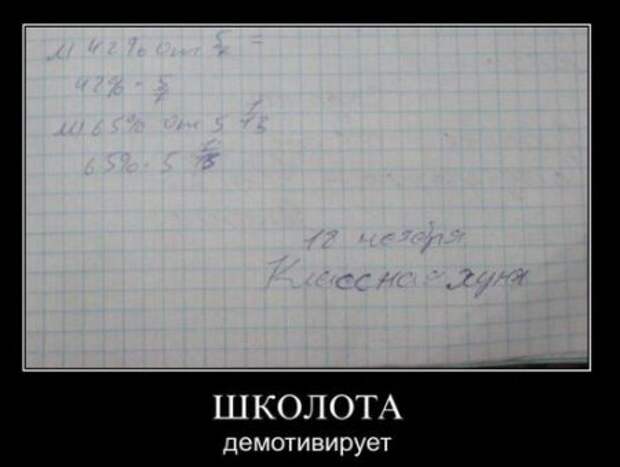 42% от 5/7 =
42% - 5/7
65% от 5 1/13
65% - 5 1/13
12 ноября
Классная хуня
ШКОЛОТА
демотивирует